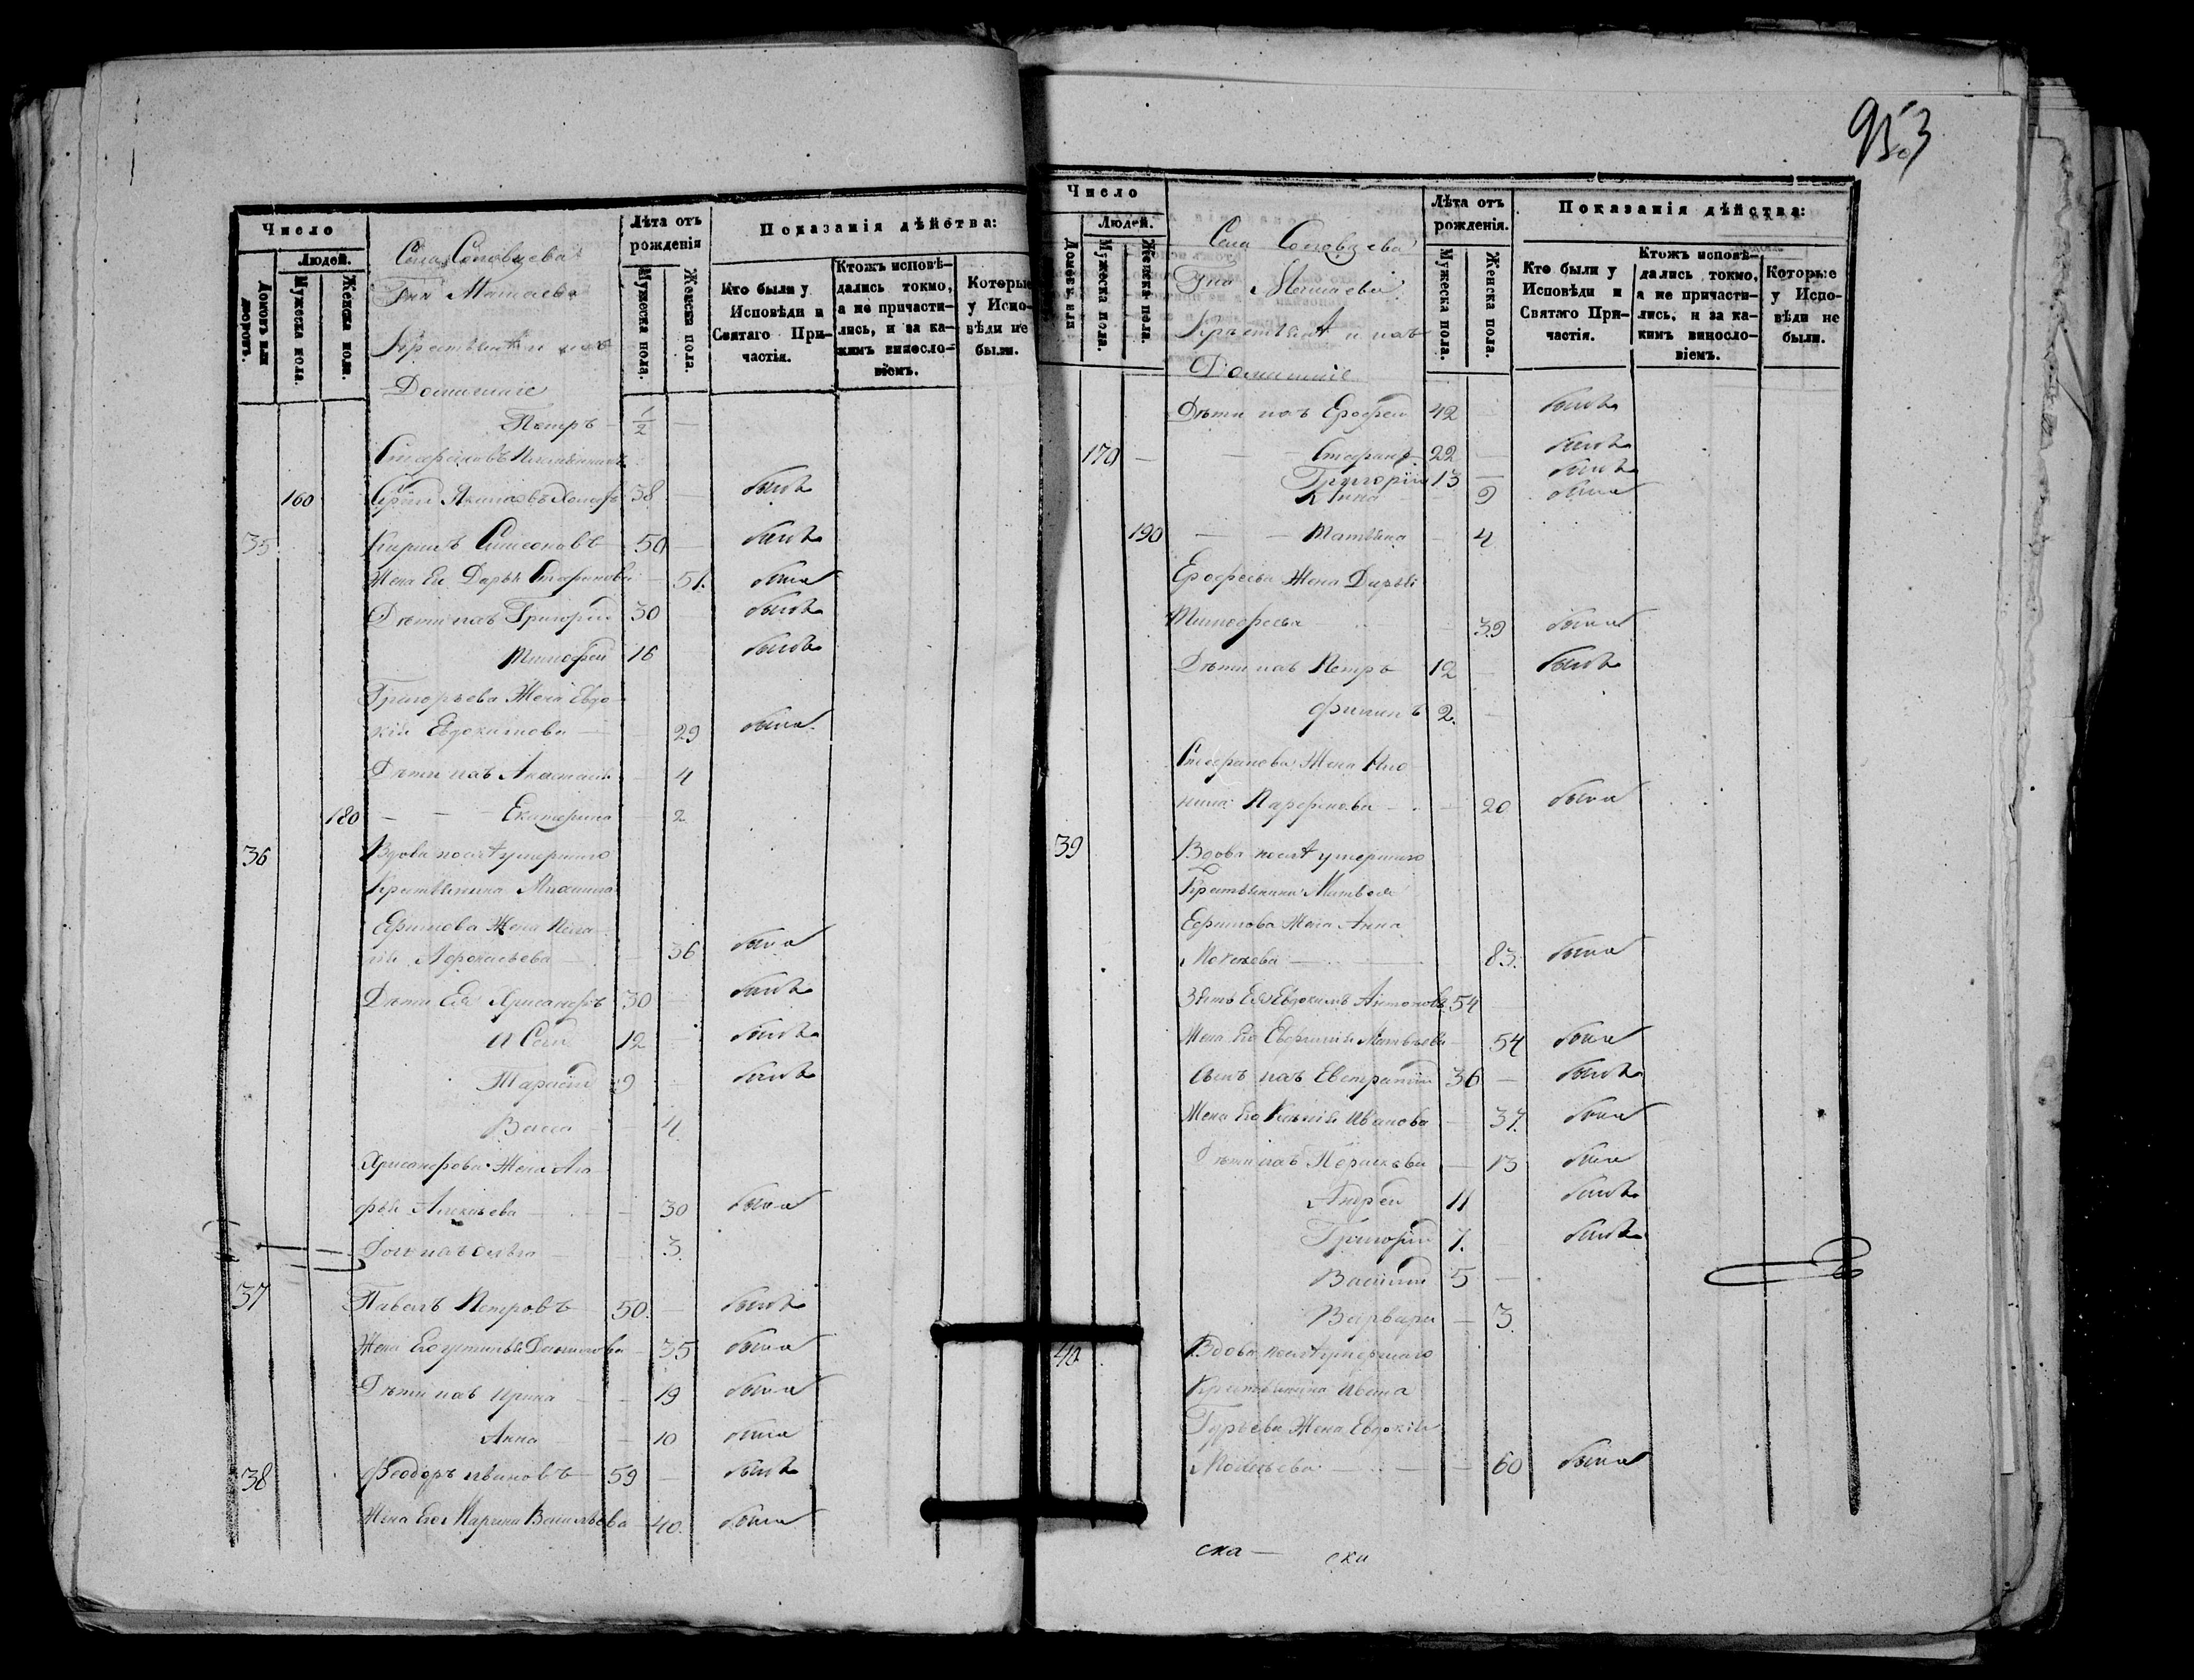 Число
Людей.
Домовъ или дворовъ.
Мужеска пола.
Женска пола.
Села Соловцева
Гна Матаева
Крестьяне и ихъ
Домашніе
Лѣта отъ рожденія
Мужеска пола.
Женска пола.
Показанія дѣйства:
Кто были у Исповѣди и Святаго Причастія.
Ктожъ исповѣдались токмо, а не причастились, и за какимъ винословіемъ.
Которые у Исповѣди не были.
Петръ 1/2 —
Стефановъ племянникъ
160 38 — былъ
35 Кирилъ Симеоновъ 50 — былъ
Жена Ея Дарья Стефанова — 51. была
Дѣти ихъ Григорій 30 былъ
Тимофей 16 былъ
Григорьева Жена Евдо
кія Евдокимова — 29 была
Дѣти ихъ Анастасія — 4
180 — — Екатерина — 2
36 Вдова послѣ умершаго
Крестьянина Михаила
Ефимова Жена Пела
гія Афонасьева — 36 была
Дѣти Ея Хрисанфъ 30 — былъ
12 — былъ
Тарасій 9 былъ
Васса — 4
Хрисанфова Жена Ага
фья Алексѣева — 30 была
Дочь ихъ — 3.
37 Павелъ Петровъ 50. — былъ
Жена Его Устинья — 35 была
Дѣти ихъ Ирина — 19 была
Анна — 10 была
38 Феодоръ Ивановъ 59 — былъ
Жена Его Марина Васильева 40. была
953
Число
Людей.
Домовъ или
Мужеска пола.
Женска пола.
Села Соловцева
Гна Матаева
Крестьяне и ихъ
Домашніе
Лѣта отъ рожденія.
Мужеска пола.
Женска пола.
Показанія дѣйства:
Кто были у Исповѣди и Святаго Причастія.
Ктожъ исповѣдались токмо, а не причастились, и за какимъ винословіемъ.
Которые у Исповѣди не были.
Дѣти ихъ Ерофей 42 — былъ
170 — — Стефанъ 22 — былъ
Григорій 13 — былъ
Анна — 9 была
190 — — Татьяна — 4
Ерофеева Жена Дарья
Тимофеева — 39 была
Дѣти ихъ Петръ 12 — былъ
Филипъ 2. —
Стефанова Жена
Парфенова — 20 была
39 Вдова послѣ умершаго
Крестьянина Матвея
Ефимова Жена Анна
— 83. была
Зять Ея Евдокимъ Антоновъ 54 —
Жена Его Евфимія Матвѣева — 54 была
Сынъ ихъ Евстратій 36 — былъ
Жена Его Ксенія Иванова — 37. была
Дѣти ихъ Параскева — 13 была
Андрей 11 былъ
Григорій 7. былъ
Василій 5 —
Варвара — 3.
40 Вдова послѣ умершаго
Крестьянина Ивана
Гурьева Жена Евдокія
— 60 была
ска — ска